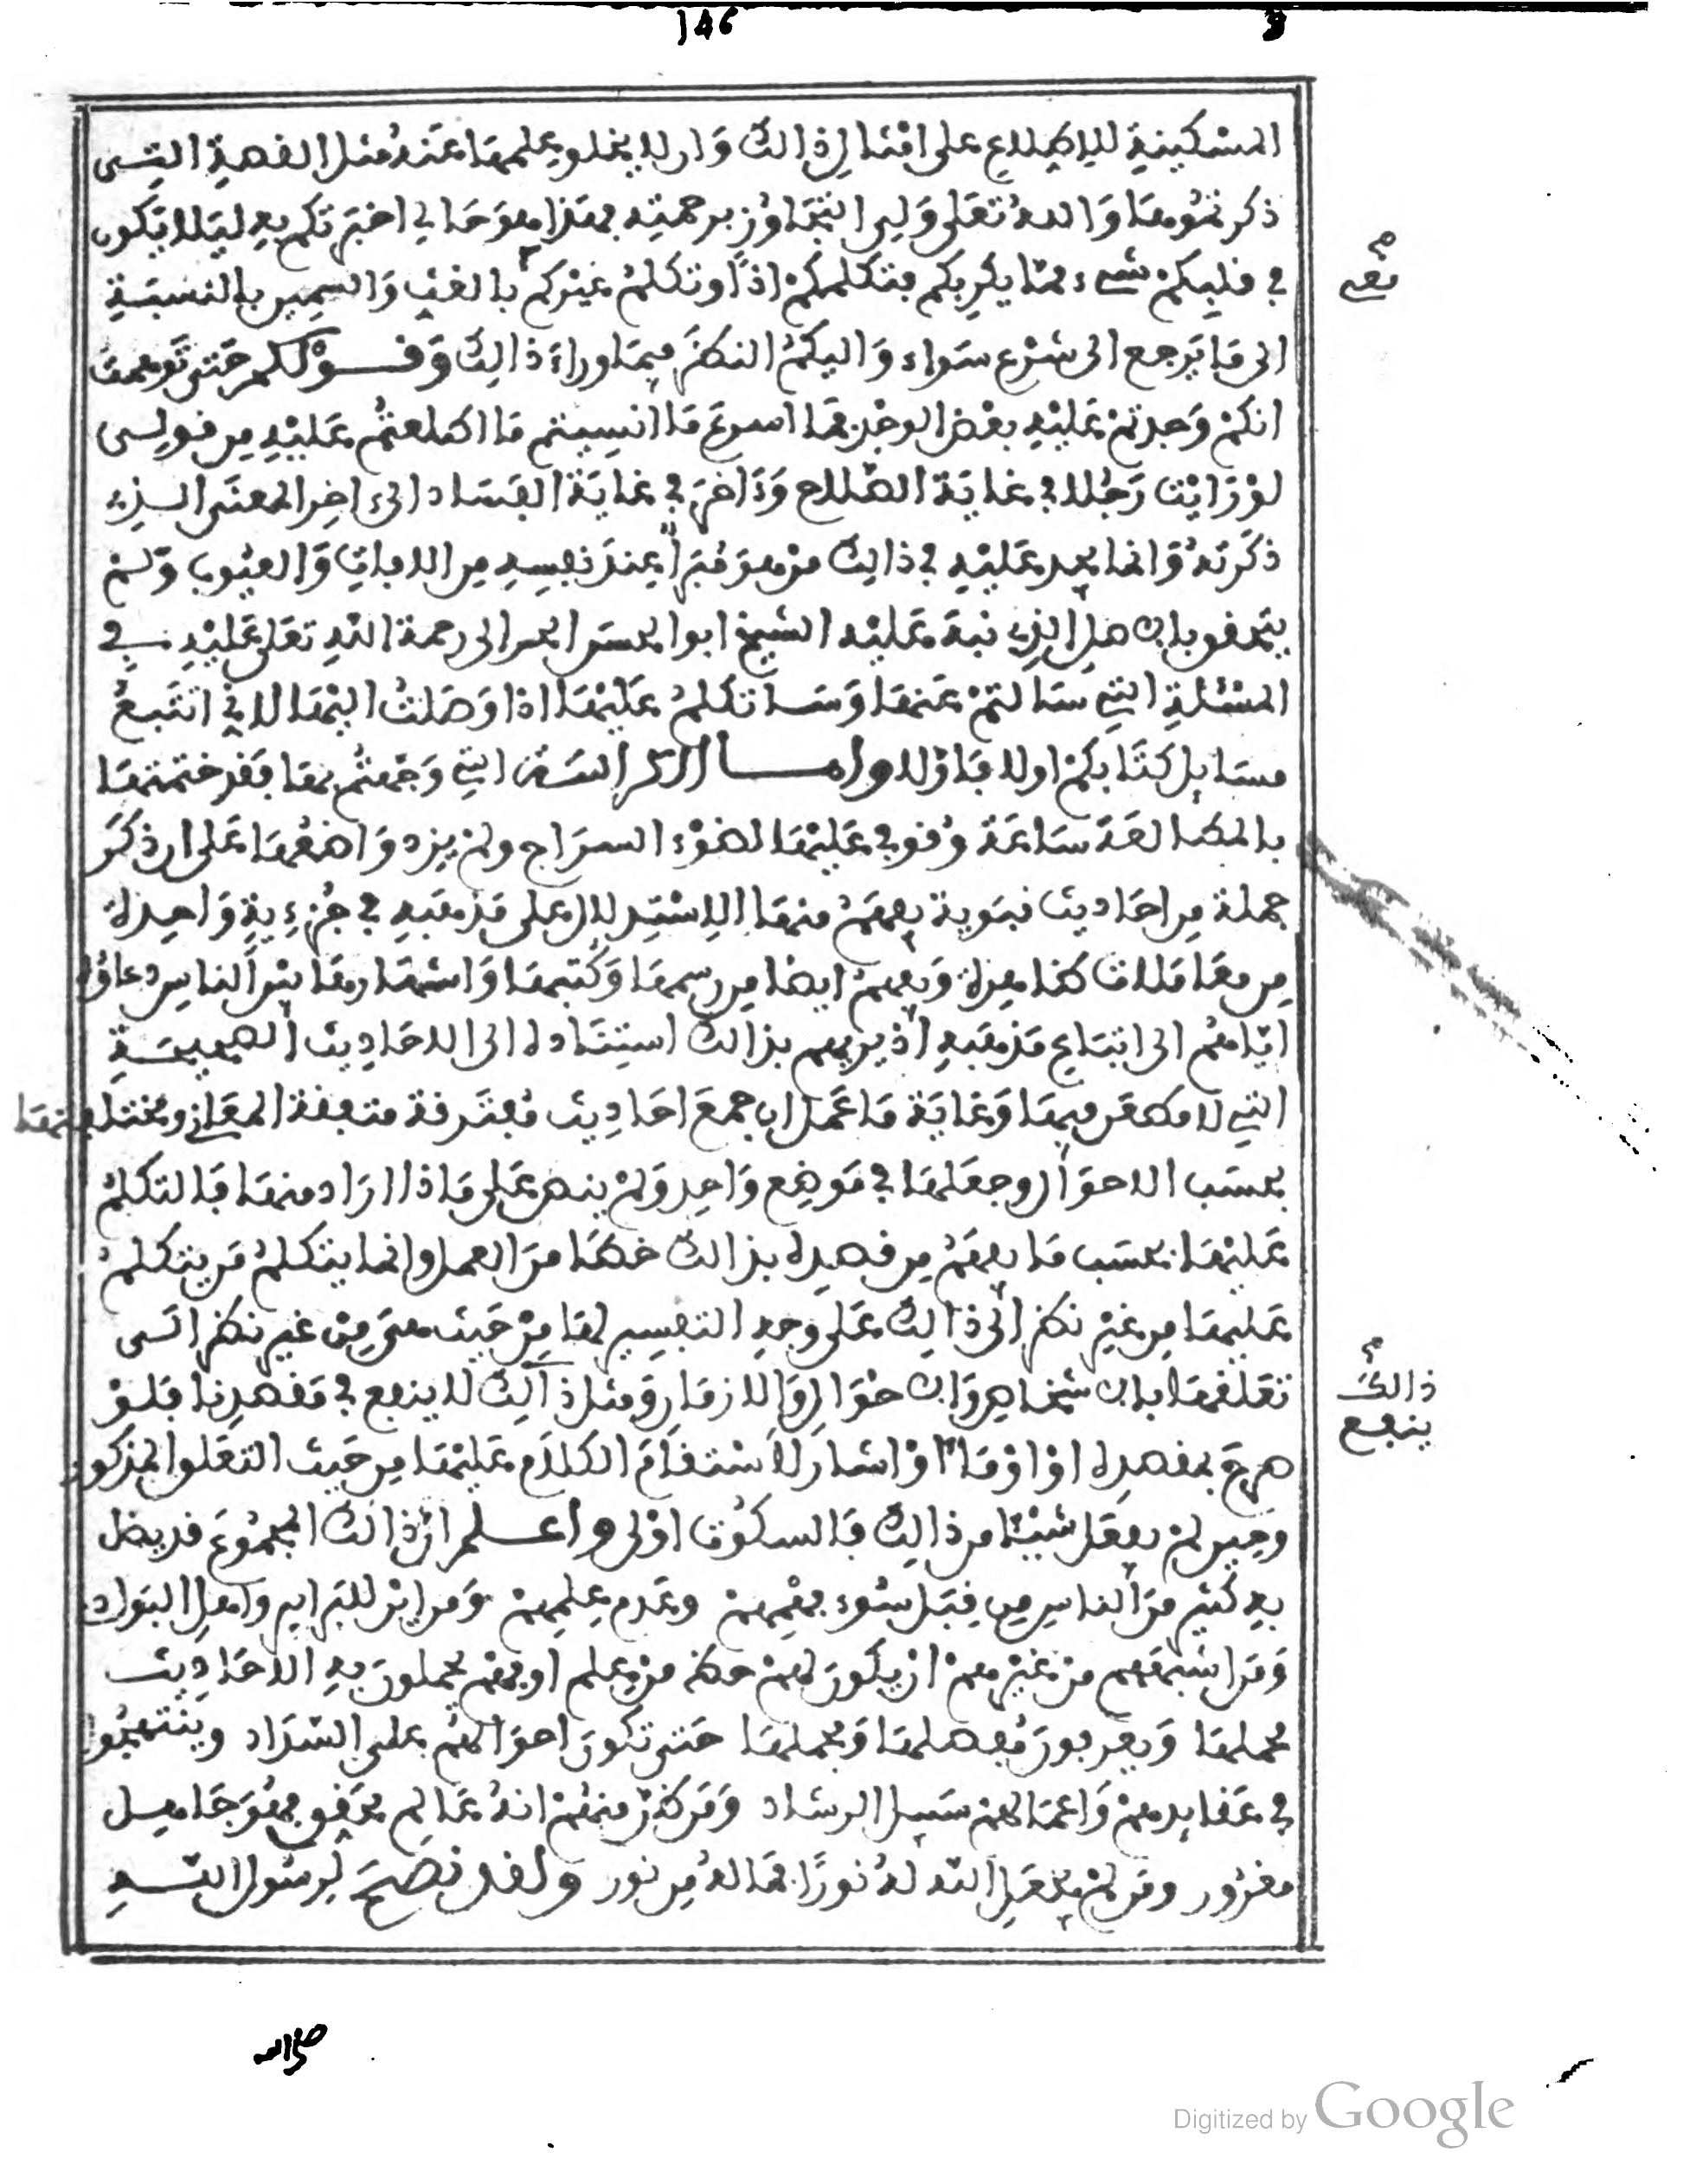 146
المسكينة للاطلاع على امثال ذالك وان لا يغلق علمها عنه مثل القصة التي
ذكرتموها والله تعلى ولي التجاوز برحمته فهذا هو حالي اخبرتكم به ليلا يكون
في قلبكم شيء مما يكربكم فتكلمكم اذا وتكلم غيركم بالغث والسمين بالنسبة
الى ما يرجع الى شرع سواء واليكم النظر فيما وراء ذالك وقولكم حتى توهمت
انكم وجدتم عليه بعض الوجد فما اسرع ما انسيتم ما اطلعتم عليه من قولي
لو رايت رجلا في غاية الصلاح وءاخر في غاية الفساد الى اخر المعنى الذي
ذكرته وانما يجد عليه في ذالك من هو مبرأ عند نفسه من الافات والعيوب ولم
يتحقق بان هل الذي نبه عليه الشيخ ابو الحسن الحرالي رحمة الله تعلى عليه في
المسئلة التي سالتم عنها وساتكلم عليها اذا وصلت اليها لاني اتتبع
مسايل كتابكم اولا فاولا واما الكراسة التي وجهتم بها فقد ختمتها
بالمطالعة ساعة وقوفي عليها لضوء السراج ولم يزد واضعها على ان ذكر
جملة من احاديث نبوية يفهم منها الاستدلال على مذهبه في جزءية واحدة
من مقامات ظاهرة ويفهم ايضا من رسمها وكتبها واشهارها بين الناس دعاؤه
اياهم الى اتباع مذهبه اذ يريهم بذالك استناده الى الاحاديث الصحيحة
التي لا مطعن فيها وغاية ما عمل ان جمع احاديث مفترقة متفقة المعاني ومختلفتها
بحسب الاحوال وجعلها في موضع واحد ولم ينص على ماذا اراد منها فالتكلم
عليها بحسب ما يفهم من قصده بذالك خطا من العمل وانما يتكلم من يتكلم
عليها من غير نظر الى ذالك على وجه التفسير لها من حيث هي من غير نظر الى
تعلقها بان شخاص وان حوال والازمان ومثل ذالك لا ينفع في مقصدنا فلو
صرح بمقصده او اومأ او اشار لاستقام الكلام عليها من حيث التعلق المذكور
وحين لم يفعل شيئا من ذالك فالسكوت اولى واعلم ان ذالك المجموع قد يضل
به كثير من الناس من قبل سوء فهمهم وعدم علمهم ومن اين للبرابر واهل البوادي
ومن اشبههم من غيرهم ان يكون لهم حظ من علم او فهم يحملون به الاحاديث
محملها ويعرفون مفصلها ومجملها حتى تكون احوالهم على السداد وينتهجوا
في عقايدهم واعمالهم سبيل الرشاد ومن ظن منهم انه عالم محقق فهو جاهل
مغرور ومن لم يجعل الله له نورا فما له من نور ولقد نصح لرسول الله
تعلى
ذالك
ينفع
صلى الله
Digitized by Google